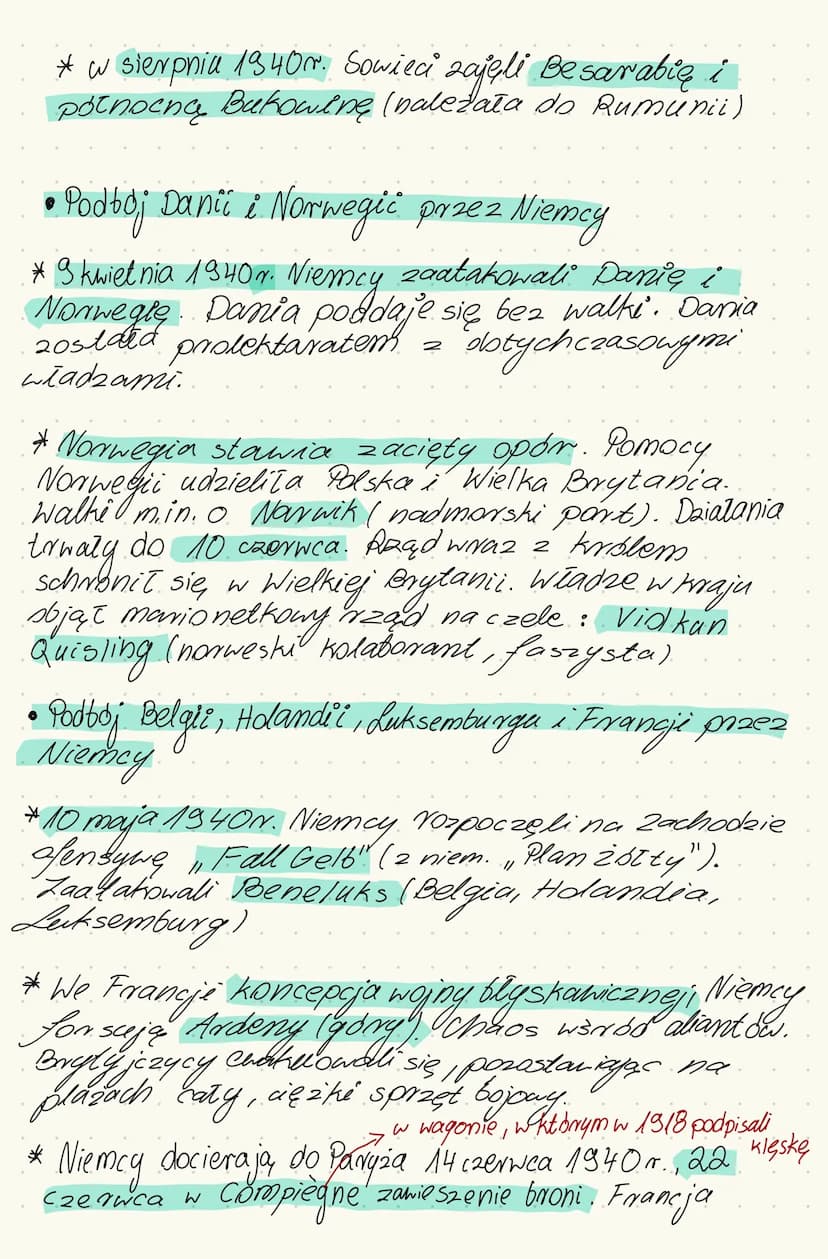 * w sierpniu 1940r. Sowieci zajęli Besarabię i
północną Bukowinę (należała do Rumunii)
• Podbój Danii i Norwegii przez Niemcy
* 9 kwietnia 1940r. Niemcy zaatakowali Danię i
Norwegię. Dania poddaje się bez walki. Dania
została prolektaratem z dotychczasowymi
władzami.
* Norwegia stawia zacięty opór. Pomocy
Norwegii udzieliła Polska i Wielka Brytania.
Walki m.in. o Narwik (nadmorski port). Działania
trwały do 10 czerwca. Rząd wraz z królem
schronił się w Wielkiej Brytanii. Władze w kraju
objął marionetkowy rząd na czele: Vidkun
Quisling (norweski kolaborant, faszysta)
• Podbój Belgii, Holandii, Luksemburga i Francji przez
Niemcy
* 10 maja 1940r. Niemcy rozpoczęli na Zachodzie
ofensywę „Fall Gelb" (z niem. „Plan żółty").
Zaatakowali Beneluks (Belgia, Holandia,
Luksemburg)
* We Francji koncepcja wojny błyskawicznej, Niemcy
forsują Ardeny (góry). Chaos wśród aliantów.
Brytyjczycy ewakuowali się, pozostawiając na
plażach cały, ciężki sprzęt bojowy.
w wagonie, w którym w 1918 podpisali
klęskę
* Niemcy docierają do Paryża 14 czerwca 1940r., 22
czerwca w Compiègne zawieszenie broni. Francja